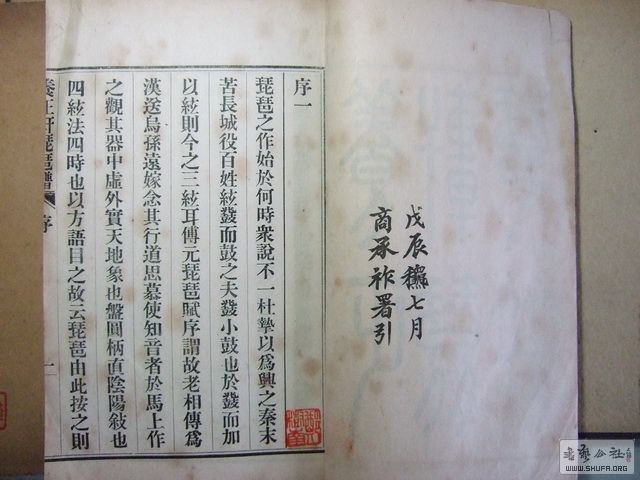 戊辰龝七月
商承祚署引
序一
琵琶之作始於何時衆說不一杜摯以爲興之秦末
苦長城役百姓絃鼗而鼓之夫鼗小鼓也於鼗而加
以絃則今之三絃耳傅元琵琶賦序謂故老相傳爲
漢送烏孫遠嫁念其行道思慕使知音者於馬上作
之觀其器中虛外實天地象也盤圓柄直陰陽敍也
四絃法四時也以方語目之故云琵琶由此按之則
養正軒琵琶譜
序
一
書法公社
WWW.SHUFA.ORG